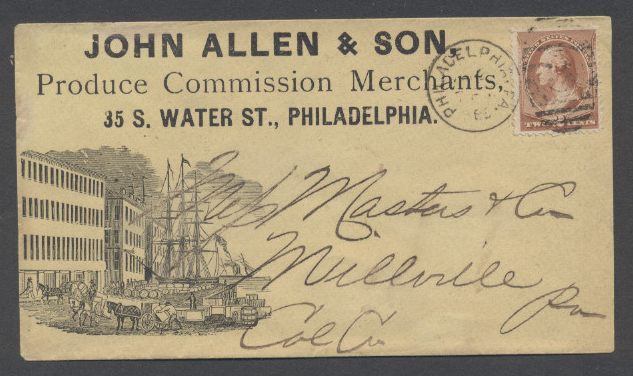 JOHN ALLEN & SON,
Produce Commission Merchants,
35 S. WATER ST., PHILADELPHIA.
PHILADELPHIA, PA.
TWO CENTS
Masters & Co
Millville
Pa
Col Co